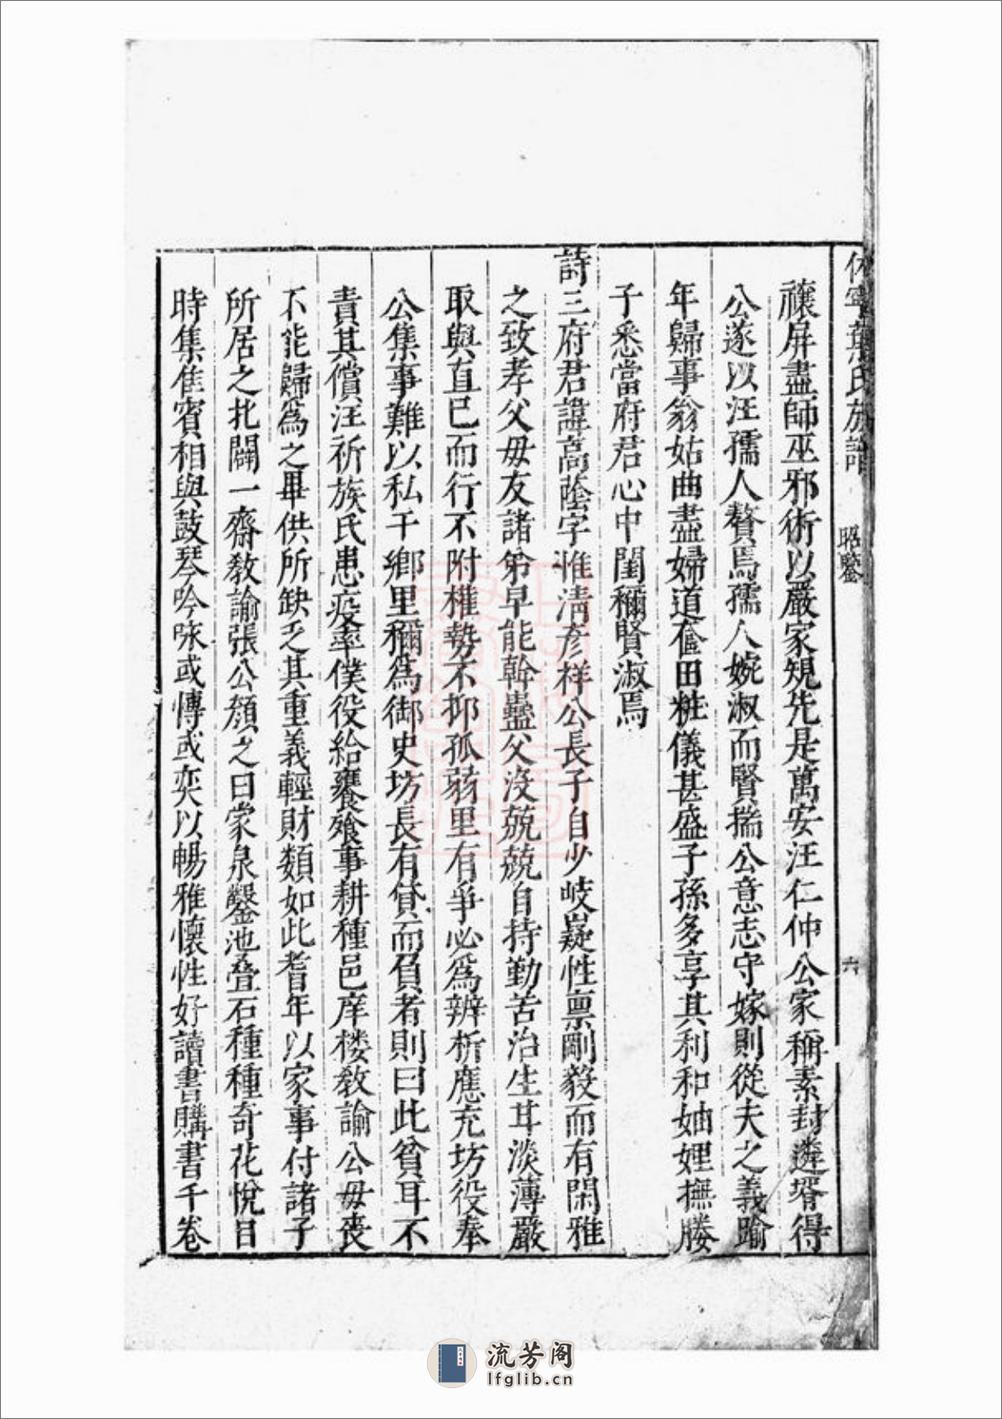 休寧葉氏族譜 昭鑒 六
禳屏盡師巫邪術以嚴家規先是萬安汪仁仲公家稱素封遴壻得
公遂以汪孺人贅焉孺人婉淑而賢揣公意志守嫁則從夫之義踰
年歸事翁姑曲盡婦道奩田粧儀甚盛子孫多享其利和妯娌撫媵
子悉當府君心中閨稱賢淑焉
詩三府君諱高蔭字惟清彥祥公長子自少岐嶷性禀剛毅而有閑雅
之致孝父母友諸弟早能幹蠱父沒兢兢自持勤苦治生甘淡薄嚴
取與直已而行不附權勢不抑孤弱里有爭必為辨析應充坊役奉
公集事難以私干鄉里稱為御史坊長有貸而負者則曰此貧耳不
責其償汪祈族氏患疫率僕役給饔飱事耕種邑庠楼教諭公母喪
不能歸為之畢供所缺乏其重義輕財類如此耆年以家事付諸子
所居之北闢一齋教諭張公顏之曰蒙泉鑿池叠石種種奇花悅目
時集隹賓相與鼓琴吟咏或慱或奕以暢雅懷性好讀書購書千卷
流芳阁
lfglib.cn